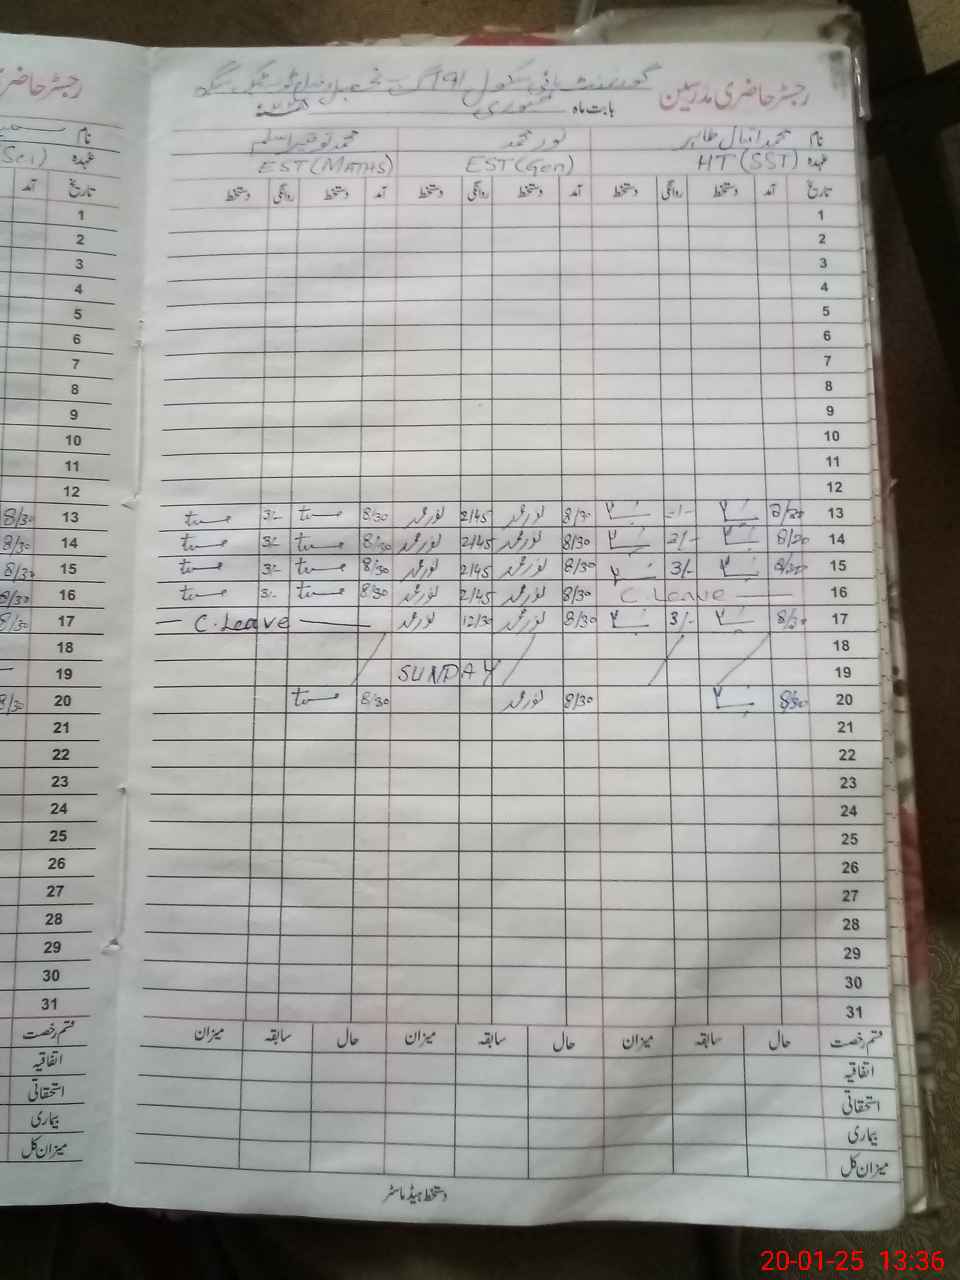 رجسٹر حاضری مدرسین گورنمنٹ ہائی سکول 191 گ ب تحصیل و ضلع ٹوبہ ٹیک سنگھ
بابت ماہ جنوری
نام محمد اقبال طاہر نور محمد محمد توقیر اسلم
عہدہ HT (SST) EST (Gen) EST (MATHS)
تاریخ آمد دستخط روانگی دستخط آمد دستخط روانگی دستخط آمد دستخط روانگی دستخط
1
2
3
4
5
6
7
8
9
10
11
12
13 8/30 8/30 نور محمد 2/45 نور محمد 8/30 3/-
14 8/30 2/- 8/30 نور محمد 2/45 نور محمد 8/30 3/-
15 8/30 3/- 8/30 نور محمد 2/45 نور محمد 8/30 3/-
16 C. Leave 8/30 نور محمد 2/45 نور محمد 8/30 3/-
17 8/30 3/- 8/30 نور محمد 12/30 نور محمد C. Leave
18
19 SUNDAY
20 8/30 8/30 نور محمد 8/30
21
22
23
24
25
26
27
28
29
30
31
قسم رخصت حال سابقہ میزان حال سابقہ میزان حال سابقہ میزان
اتفاقیہ
استحقاقی
بیماری
میزان کل
دستخط ہیڈ ماسٹر
رجسٹر حاضری
نام
عہدہ (Sci)
تاریخ آمد
1
2
3
4
5
6
7
8
9
10
11
12
13 8/30
14 8/30
15 8/30
16 8/30
17 8/30
18
19
20 8/30
21
22
23
24
25
26
27
28
29
30
31
قسم رخصت
اتفاقیہ
استحقاقی
بیماری
میزان کل
20-01-25 13:36